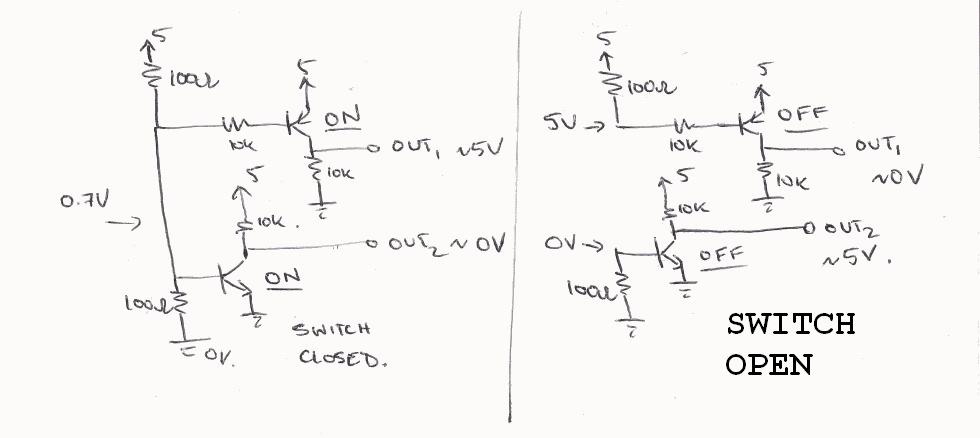 5
100Ω
5
ON
10K
OUT₁ ~5V
10K
0.7V
5
10K.
OUT₂ ~ 0V
ON
100Ω
0V.
SWITCH
CLOSED.
5
100Ω
5
OFF
5V
10K
OUT₁
~0V
10K
5
10K
0V
OUT₂
~5V.
OFF
100Ω
SWITCH
OPEN